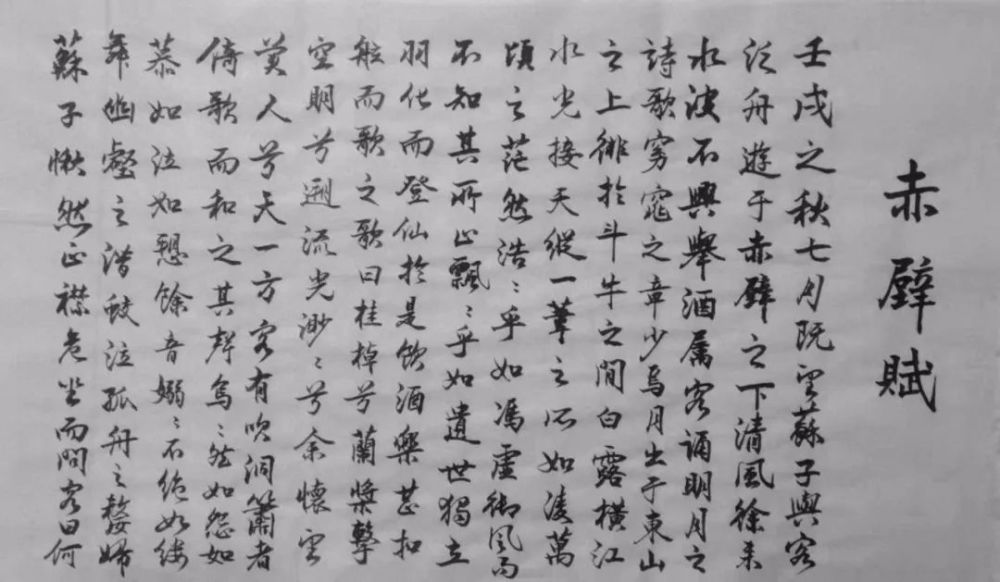 赤壁賦
壬戌之秋七月既望蘇子與客
泛舟遊于赤壁之下清風徐來
水波不興舉酒属客誦明月之
詩歌窈窕之章少焉月出于東山
之上徘於斗牛之間白露橫江
水光接天縱一葦之所如淩萬
頃之茫然浩〻乎如馮虛御風而
不知其所止飄〻乎如遺世獨立
羽化而登仙於是飲酒樂甚扣
舷而歌之歌曰桂棹兮蘭槳擊
空明兮遡流光渺〻兮余懷望
美人兮天一方客有吹洞簫者
倚歌而和之其聲烏〻然如怨如
慕如泣如愬餘音嫋〻不絕如縷
舞幽壑之潛蛟泣孤舟之嫠婦
蘇子愀然正襟危坐而問客曰何